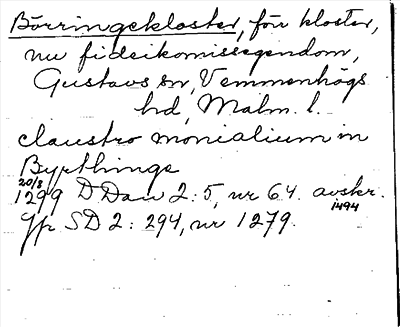 Börringekloster, förr kloster,
nu fideikomissegendom,
Gustavs sn, Vemmenhögs
hd, Malm. l.
claustro monialium in
Byrthinge
20/8
1299 DDan 2:5, nr 64. avskr.
1494
Jfr SD 2: 294, nr 1279.